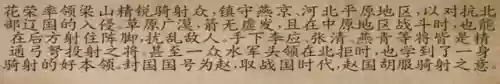 花荣率领梁山精锐骑射众,镇守燕京、河北平原地区,以对抗北
部辽国的入侵,草原广漠,箭无虚发,且在中原地区战斗时,也能
在后方射住阵脚,扰乱敌人,手下李应、张清、燕青等将皆是精
通弓弩投射之将,甚至一众水军头领在北拒时,也学到了一身
骑射的好本领。封国国号为赵,取战国时代,赵国胡服骑射之意